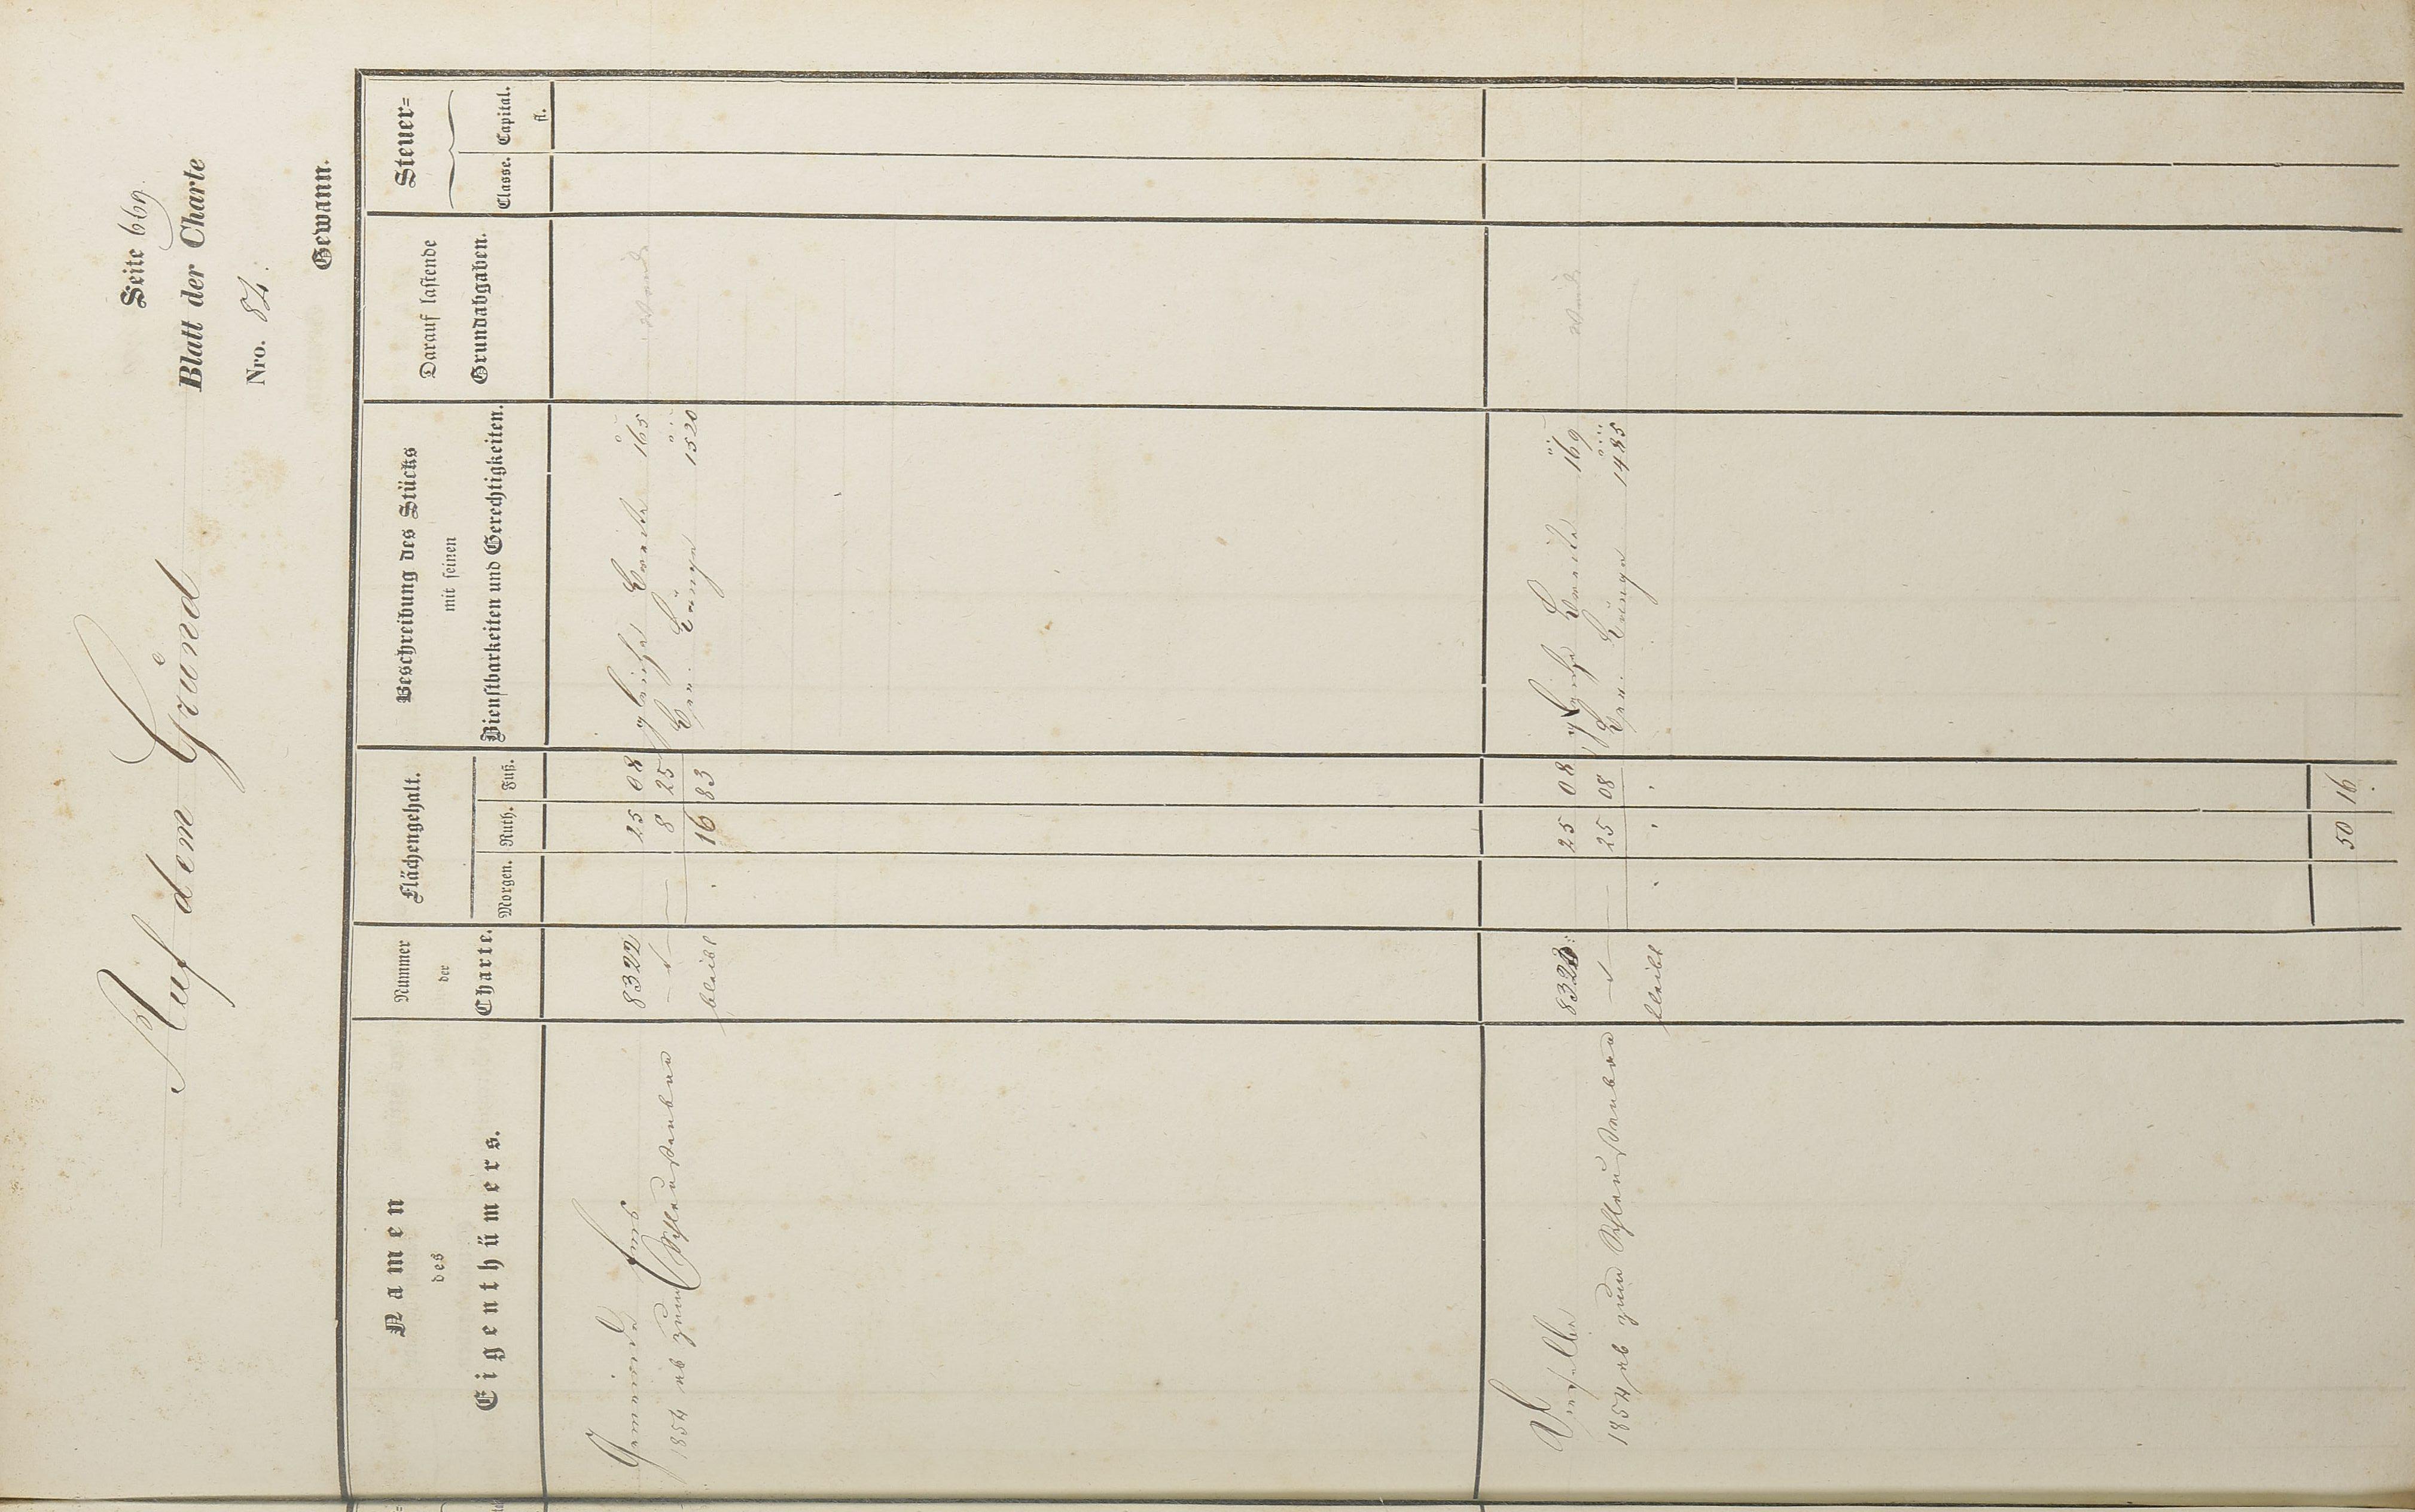 Seite 669.
Blatt der Charte
Auf dem Gründ
Nro. 84.
Gewann.
Namen
des
Eigenthümers.
Nummer
der
Charte.
Flächengehalt.
Morgen. Ruth. Fuß.
Beschreibung des Stücks
mit seinen
Dienstbarkeiten und Gerechtigkeiten.
Darauf lastende
Grundabgaben.
Steuer=
Classe. Capital.
fl.
Gemeinde Ems 8322 25 08 gleiche Breite 165
1854 ab zum 8 25 Länge 1520
bleibt . 16 83
Dieselbe 8323 25 08 gleiche Breite 169
1854 ab zum 25 08 Länge 1485
bleibt . . .
50 16.